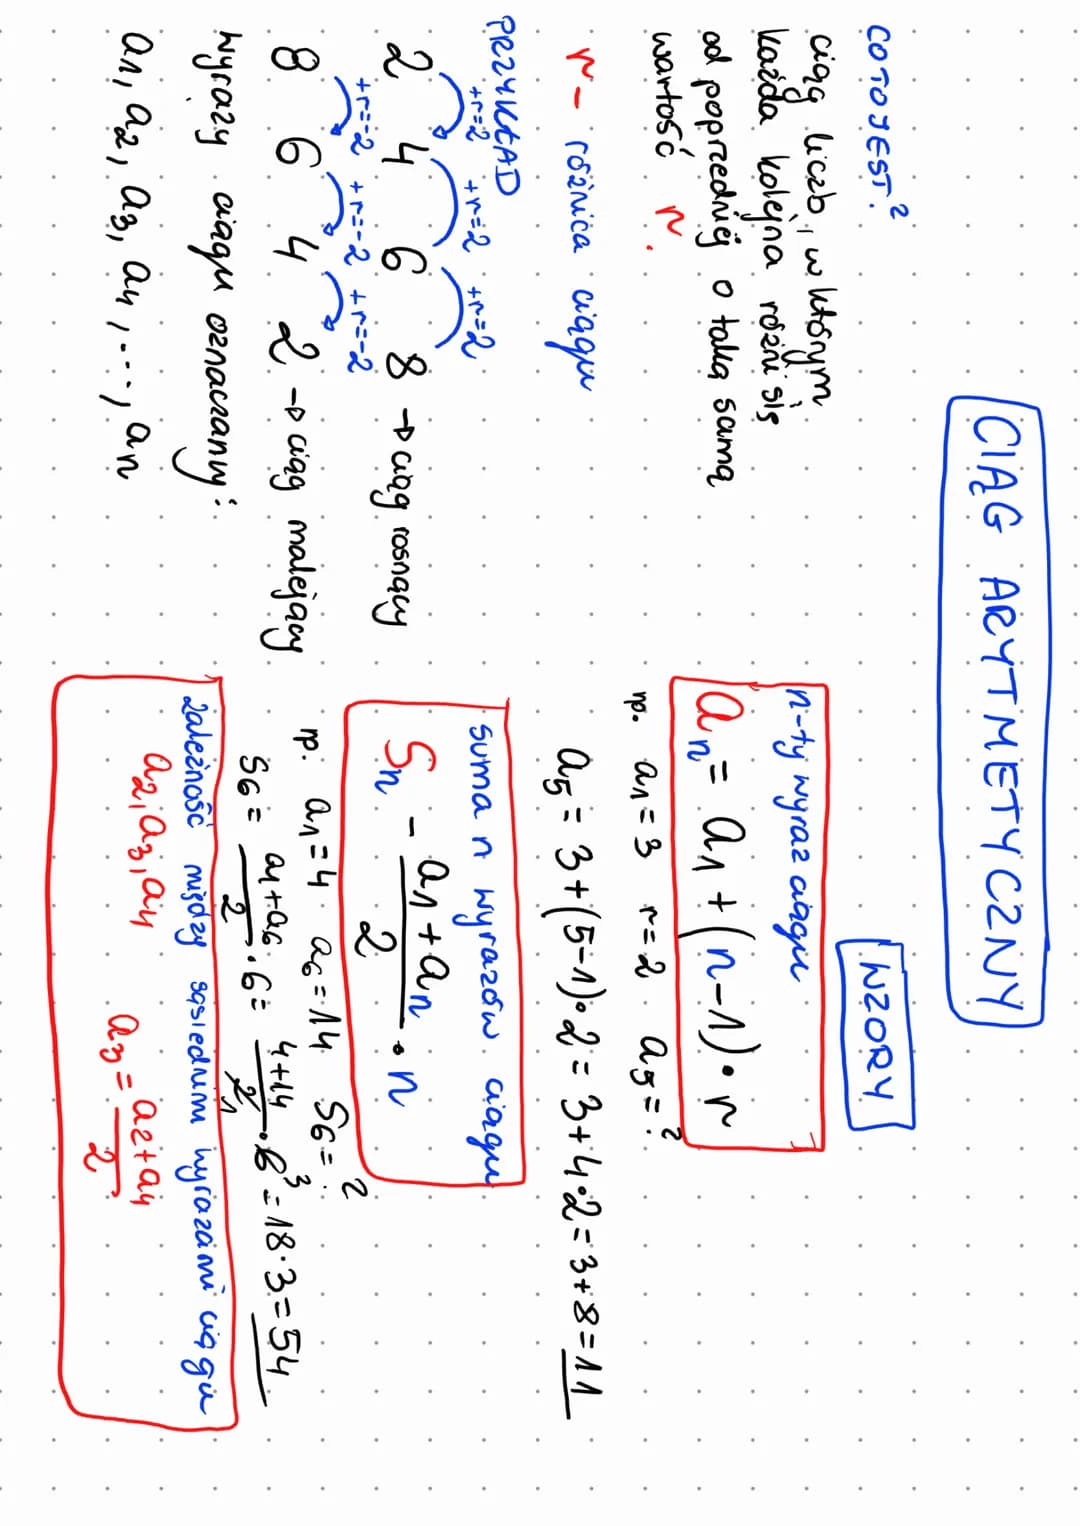 CIĄG ARYTMETYCZNY
CO TO JEST?
ciąg liczb, w którym
każda kolejna różni się
od poprzedniej o taką samą
wartość r.
r - różnica ciągu
PRZYKŁAD
+r=2 +r=2 +r=2
2 4 6 8 → ciąg rosnący
+r=-2 +r=-2 +r=-2
8 6 4 2 → ciąg malejący
wyrazy ciągu oznaczamy:
a1, a2, a3, a4, ..., an
WZORY
n-ty wyraz ciągu
an = a1 + (n-1) • r
np. a1 = 3 r=2 a5 = ?
a5 = 3+(5-1)•2 = 3+4•2 = 3+8 = 11
suma n wyrazów ciągu
Sn - a1+an/2 • n
np. a1=4 a6=14 S6=?
S6 = a1+a6/2 • 6 = 4+14/2 1 • 6 3 = 18•3 = 54
zależność między sąsiednimi wyrazami ciągu
a2, a3, a4
a3 = a2+a4/2